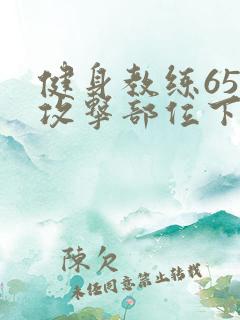 健身教练65
攻擊部位下
陳欠
未经同意禁止转载